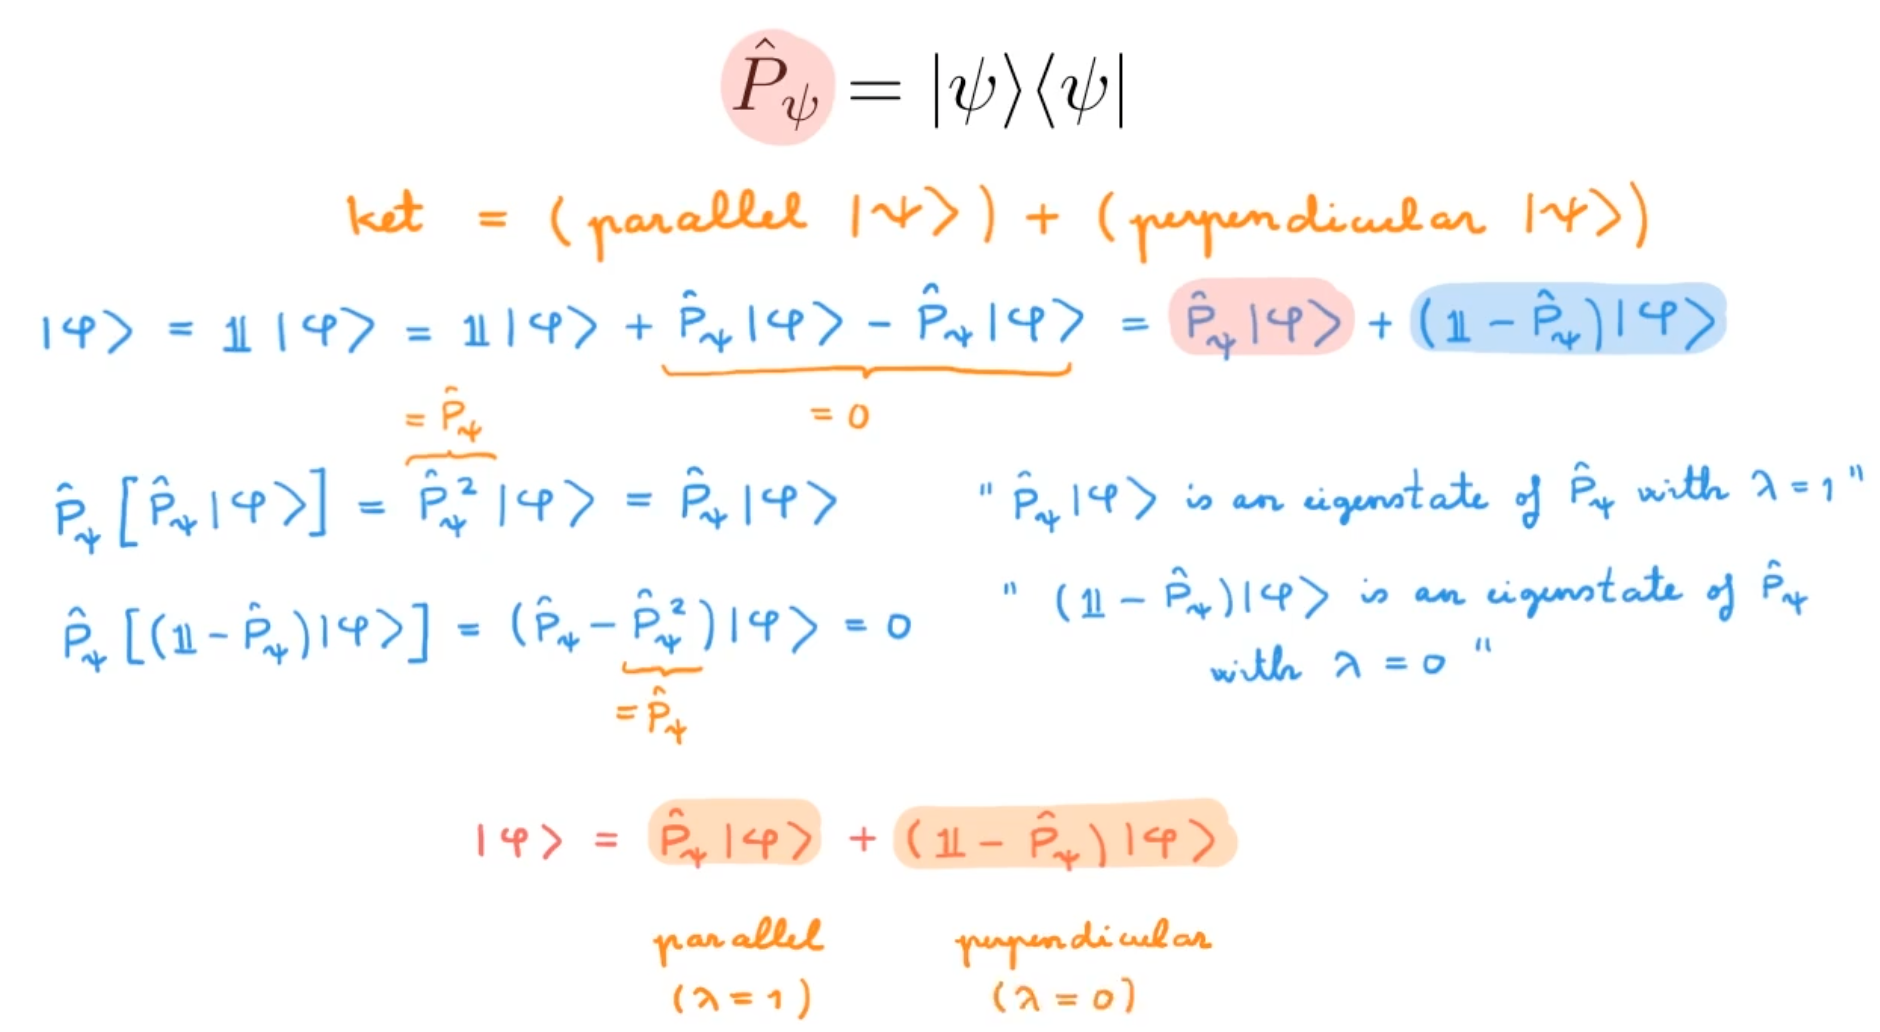 P̂_ψ = |ψ⟩⟨ψ|
ket = (parallel |ψ⟩) + (perpendicular |ψ⟩)
|φ⟩ = 𝟙|φ⟩ = 𝟙|φ⟩ + P̂_ψ|φ⟩ - P̂_ψ|φ⟩ = P̂_ψ|φ⟩ + (𝟙 - P̂_ψ)|φ⟩
= P̂_ψ
= 0
P̂_ψ[P̂_ψ|φ⟩] = P̂_ψ²|φ⟩ = P̂_ψ|φ⟩ " P̂_ψ|φ⟩ is an eigenstate of P̂_ψ with λ = 1 "
P̂_ψ[(𝟙 - P̂_ψ)|φ⟩] = (P̂_ψ - P̂_ψ²)|φ⟩ = 0 " (𝟙 - P̂_ψ)|φ⟩ is an eigenstate of P̂_ψ
with λ = 0 "
= P̂_ψ
|φ⟩ = P̂_ψ|φ⟩ + (𝟙 - P̂_ψ)|φ⟩
parallel perpendicular
(λ = 1) (λ = 0)